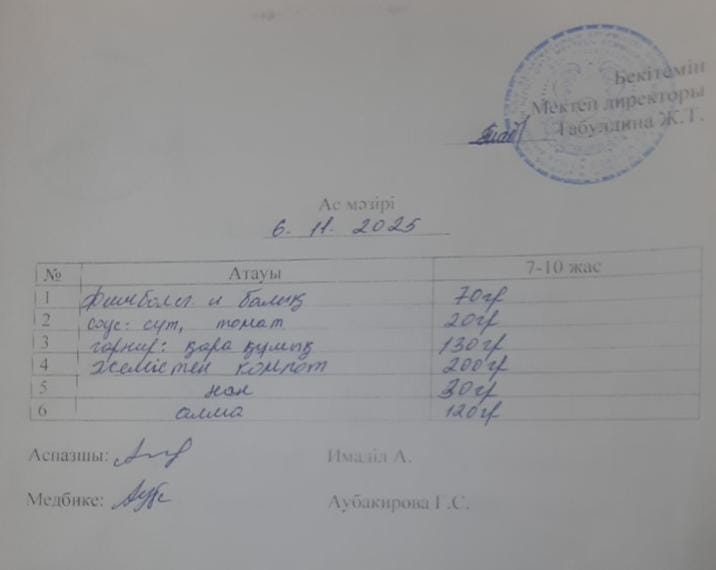 Бекітемін
Мектеп директоры
Габуддина Ж.Т.
Ас мәзірі
6. 11. 2025
№ Атауы 7-10 жас
1 Фишболы и балық 70гр
2 соус: сүт, томат 20гр
3 гарнир: қара құмық 130гр
4 Жемістен компот 200гр
5 нан 30гр
6 алма 120гр
Аспазшы: Ималіл А.
Медбике: Аубакирова Г.С.